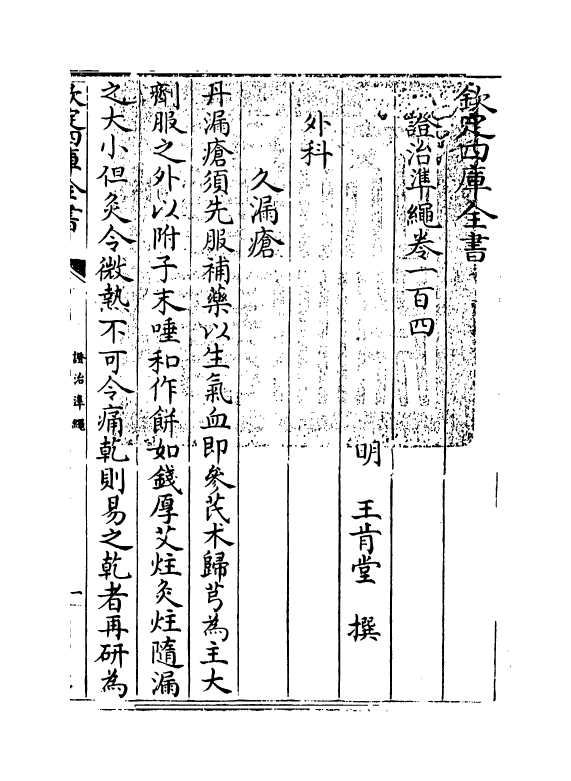 欽定四庫全書
證治準繩卷一百四
明 王肯堂 撰
外科
久漏瘡
丹漏瘡須先服補藥以生氣血即參芪术歸芎為主大
劑服之外以附子末唾和作餅如錢厚艾炷灸炷隨漏
之大小但灸令微熱不可令痛乾則易之乾者再研為
欽定四庫全書
證治準繩
一